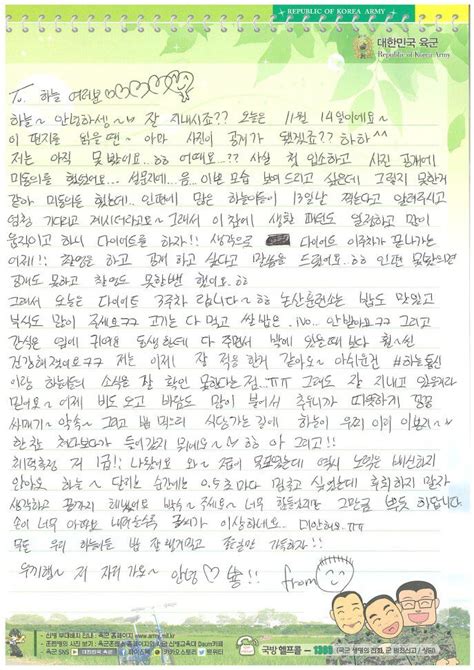 REPUBLIC OF KOREA ARMY
대한민국 육군
Republic of Korea Army
To. 하늘 여러분 ♡♡♡♡
하늘~ 안녕하세용~ 잘 지내시죠?? 오늘은 11월 14일이에요~
이 편지를 읽을 땐~ 아마 사진이 공개가 됐겠죠?? 하하^^
저는 아직 못봤어요..ㅎㅎ 어때요..?? 사실 첨 입소하고 사진 공개에
미동의를 했었어요... 음.. 이쁜 모습 보여드리고 싶은데 그렇지 못한거
같아 미동의를 했는데.. 인편에 많은 하늘이들이 13일날 찍는다고 알려주시고
엄청 기다리고 계시더라고요~ 그래서 이참에 생활 패턴도 열심히 하고 많이
움직이고 하니 다이어트를 하자!! 생각으로 다이어트 이주차가 끝나가는
어제!! 촬영을 하고 공개 하고 싶다고 말씀을 드렸어요..ㅎㅎ 인편 못봤으면
공개도 못하고 촬영도 못할뻔 했어요..ㅎㅎ
그래서 오늘은 다이어트 3주차 입니다~ㅎㅎ 논산훈련소는 밥도 맛있고
부식도 많이 주세요ㅋㅋ 고기는 다 먹고 쌀밥은.. No.. 안받아요ㅋㅋ 그리고
간식은 옆에 귀여운 동생한테 다 주면서 밖에 있을때 보다 훨~씬
건강해졌어요ㅋㅋ 저는 이제 잘 적응 한거 같아요~ 아쉬운건 #하늘통신
이랑 하늘이들 소식을 잘 확인 못한다는 점...ㅠㅠ 그래도 잘 지내고 있을거라
믿어요~ 어제 비도 오고 바람도 많이 불어서 추워니까 따뜻하게 꽁꽁
싸매기~ 약속~ 그리고 밥 먹으러 식당가는 길에 하늘이 우리 이쁘지~
한참 쳐다보다가 들어갔지 뭐에요~ㅎㅎ 아 그리고!!
체력측정 저 1급!! 나왔어요 와~ 2급이 목표였는데 역시 노력은 배신하지
않아요 하늘~ 달리는 순간에는 0.5초마다 멈추고 싶었는데 후회하지 말자
생각하고 끝까지 해봤어요 박수~ 주세요~ 너무 힘들었지만 그만큼 뿌듯 하답니다.
손이 너무 아파요 내려올수록 글씨가 이상하네요.. 미안해요..ㅠㅠ
모든 우리 하늘이들 밥 잘 챙겨먹고 좋은일만 가득하자!!
우리햄~ 저 자러 가요~ 안녕♡ 뿅!! from
- 신병 부대배치 안내 : 육군 홈페이지 www.army.mil.kr
육군 SNS 대한민국 육군 페이스북 카카오스토리 트위터
국방헬프콜 - 1303 (국군 생명의 전화, 군 범죄신고 / 상담)